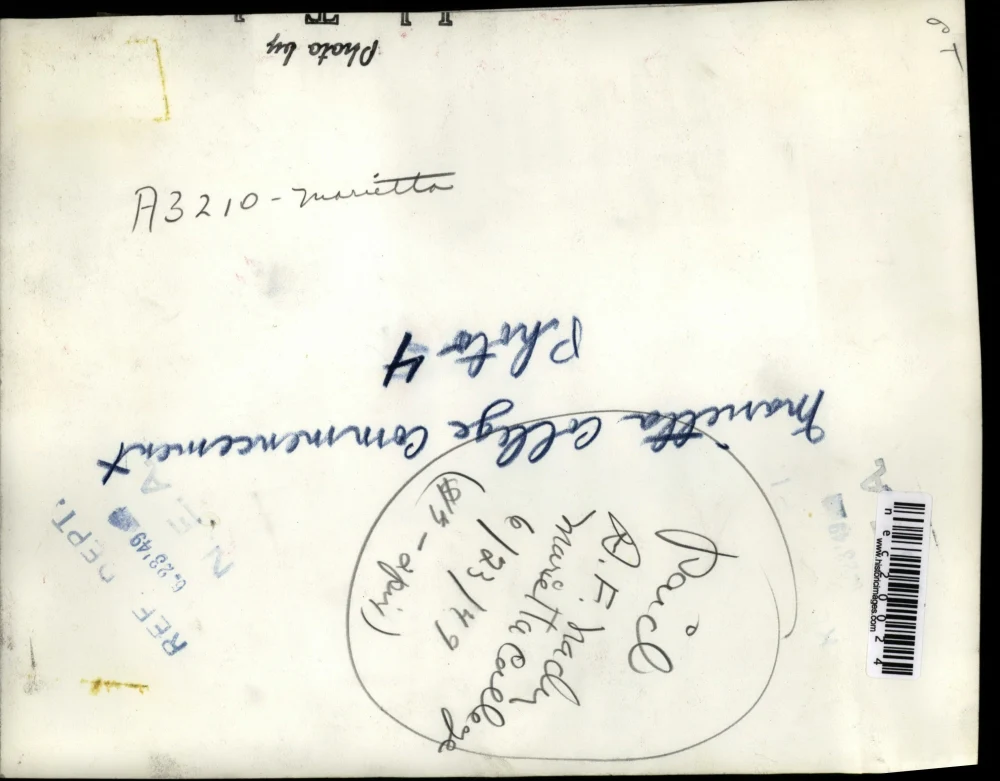 Photo by
A3210 - Marietta
Marietta College Commencement
Photo 4
Paid
6/23/49
Marietta College
REF. DEPT.
6.23'49
N. E. A
necz00024
www.historicimages.com